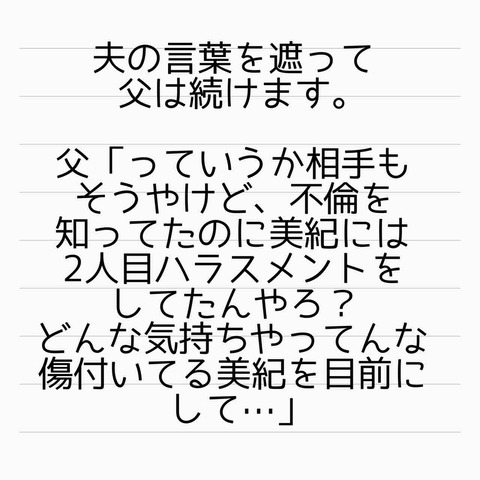 夫の言葉を遮って
父は続けます。
父「っていうか相手も
そうやけど、不倫を
知ってたのに美紀には
2人目ハラスメントを
してたんやろ？
どんな気持ちやってんな
傷付いてる美紀を目前に
して…」